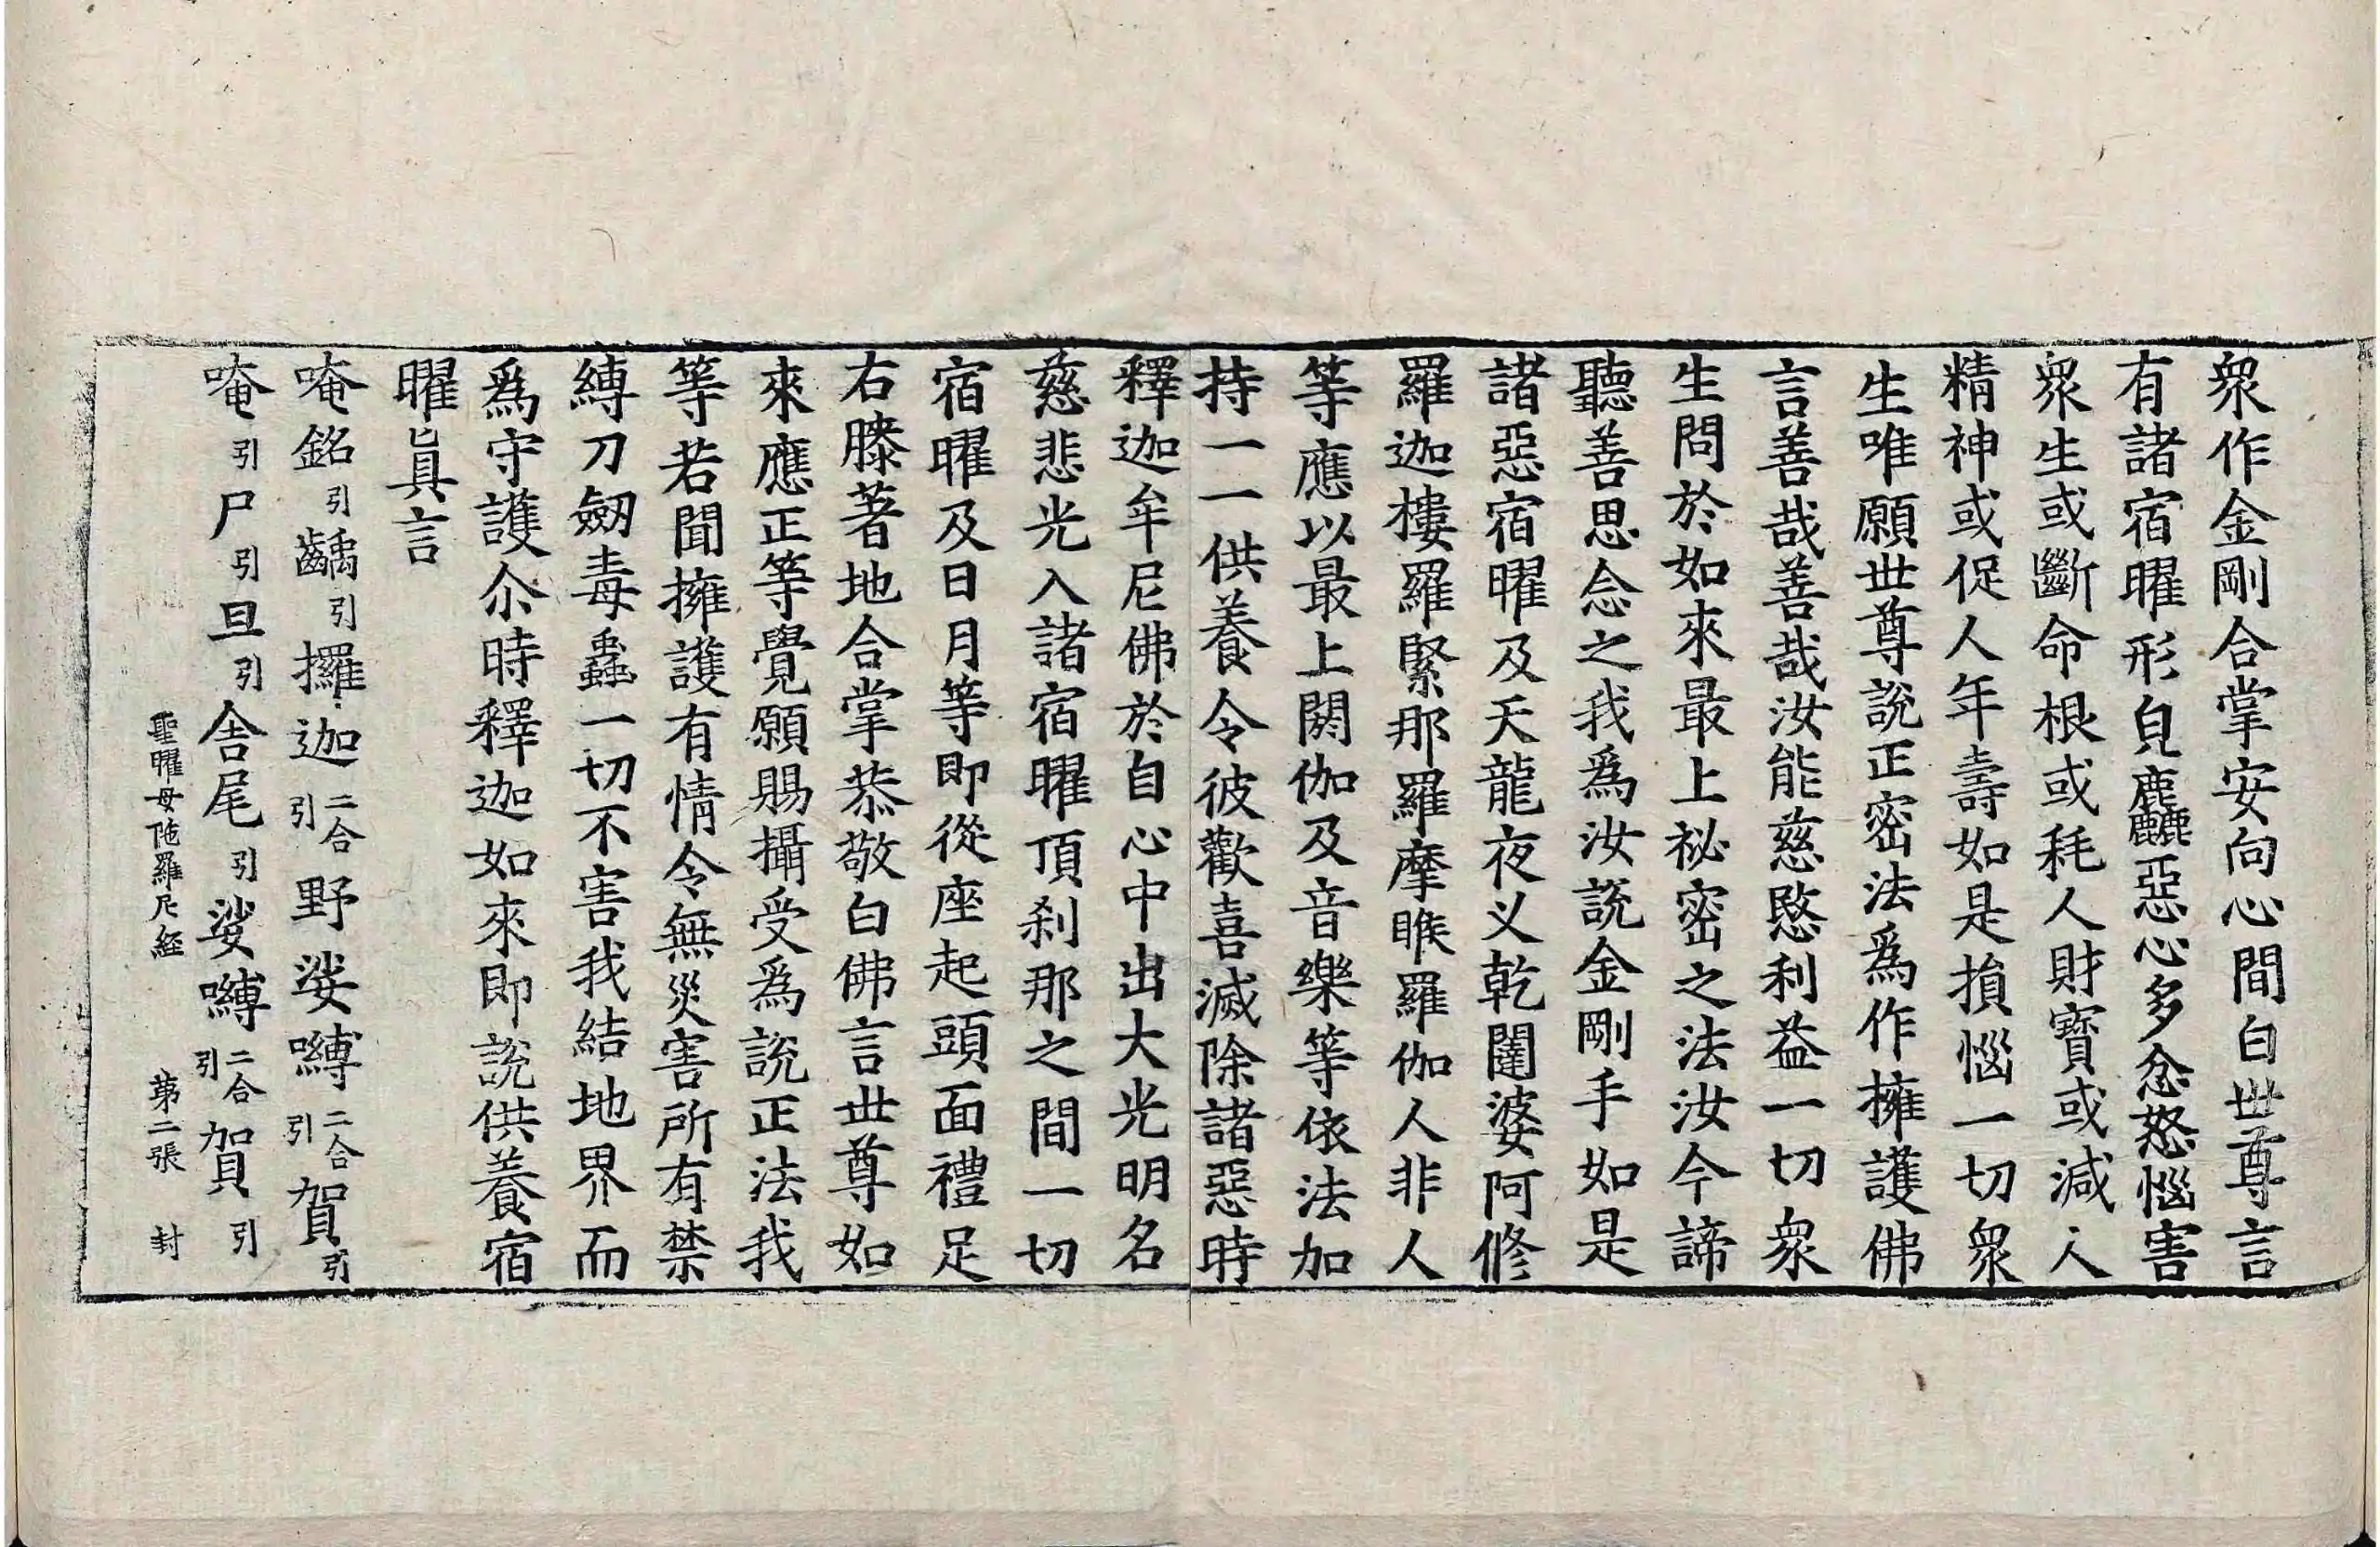 衆作金剛合掌安向心間白世尊言
有諸宿曜形皃麤惡心多忿怒惱害
衆生或斷命根或耗人財寶或減人
精神或促人年壽如是損惱一切衆
生唯願世尊說正密法爲作擁護佛
言善哉善哉汝能慈愍利益一切衆
生問於如來最上祕密之法汝今諦
聽善思念之我爲汝說金剛手如是
諸惡宿曜及天龍夜叉乾闥婆阿修
羅迦樓羅緊那羅摩睺羅伽人非人
等應以最上閼伽及音樂等依法加
持一一供養令彼歡喜滅除諸惡時
釋迦牟尼佛於自心中出大光明名
慈悲光入諸宿曜頂刹那之間一切
宿曜及日月等即從座起頭面禮足
右膝著地合掌恭敬白佛言世尊如
來應正等覺願賜攝受爲說正法我
等若聞擁護有情令無災害所有禁
縛刀劒毒蟲一切不害我結地界而
爲守護尒時釋迦如來即說供養宿
曜眞言
唵銘引齲引攞迦二合引野娑嚩二合引賀引
唵引尸引旦引舍尾引娑嚩二合引賀引
聖曜母陁羅尼經 第二張 封